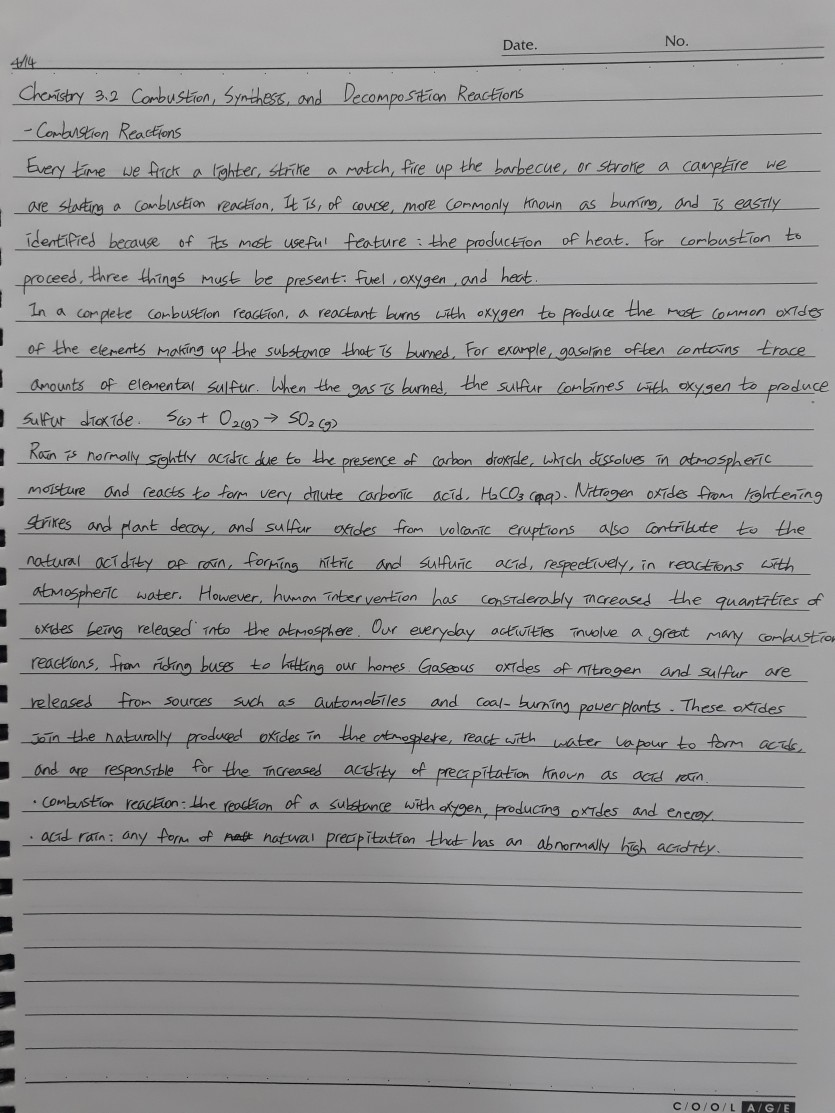 Date. No.
4/14
Chemistry 3.2 Combustion, Synthesis, and Decomposition Reactions
- Combustion Reactions
Every time we flick a lighter, strike a match, fire up the barbecue, or stroke a campfire we
are starting a combustion reaction. It is, of couse, more commonly known as burning, and is easily
identified because of its most useful feature : the production of heat. For combustion to
proceed, three things must be present: fuel, oxygen, and heat.
In a complete combustion reaction, a reactant burns with oxygen to produce the most common oxides
of the elements making up the substance that is burned. For example, gasoline often contains trace
amounts of elemental sulfur. When the gas is burned, the sulfur combines with oxygen to produce
sulfur dioxide. S(s) + O₂(g) → SO₂(g)
Rain is normally slightly acidic due to the presence of carbon dioxide, which dissolves in atmospheric
moisture and reacts to form very dilute carbonic acid, H₂CO₃(aq). Nitrogen oxides from lightening
strikes and plant decay, and sulfur oxides from volcanic eruptions also contribute to the
natural acidity of rain, forming nitric and sulfuric acid, respectively, in reactions with
atmospheric water. However, human intervention has considerably increased the quantities of
oxides being released into the atmosphere. Our everyday activities involve a great many combustion
reactions, from riding buses to hitting our homes. Gaseous oxides of nitrogen and sulfur are
released from sources such as automobiles and coal-burning power plants. These oxides
join the naturally produced oxides in the atmosplere, react with water vapour to form acids,
and are responsible for the increased acidity of precipitation known as acid rain.
· combustion reaction: the reaction of a substance with oxygen, producing oxides and energy.
· acid rain: any form of natural precipitation that has an abnormally high acidity.
C/O/O/L A/G/E